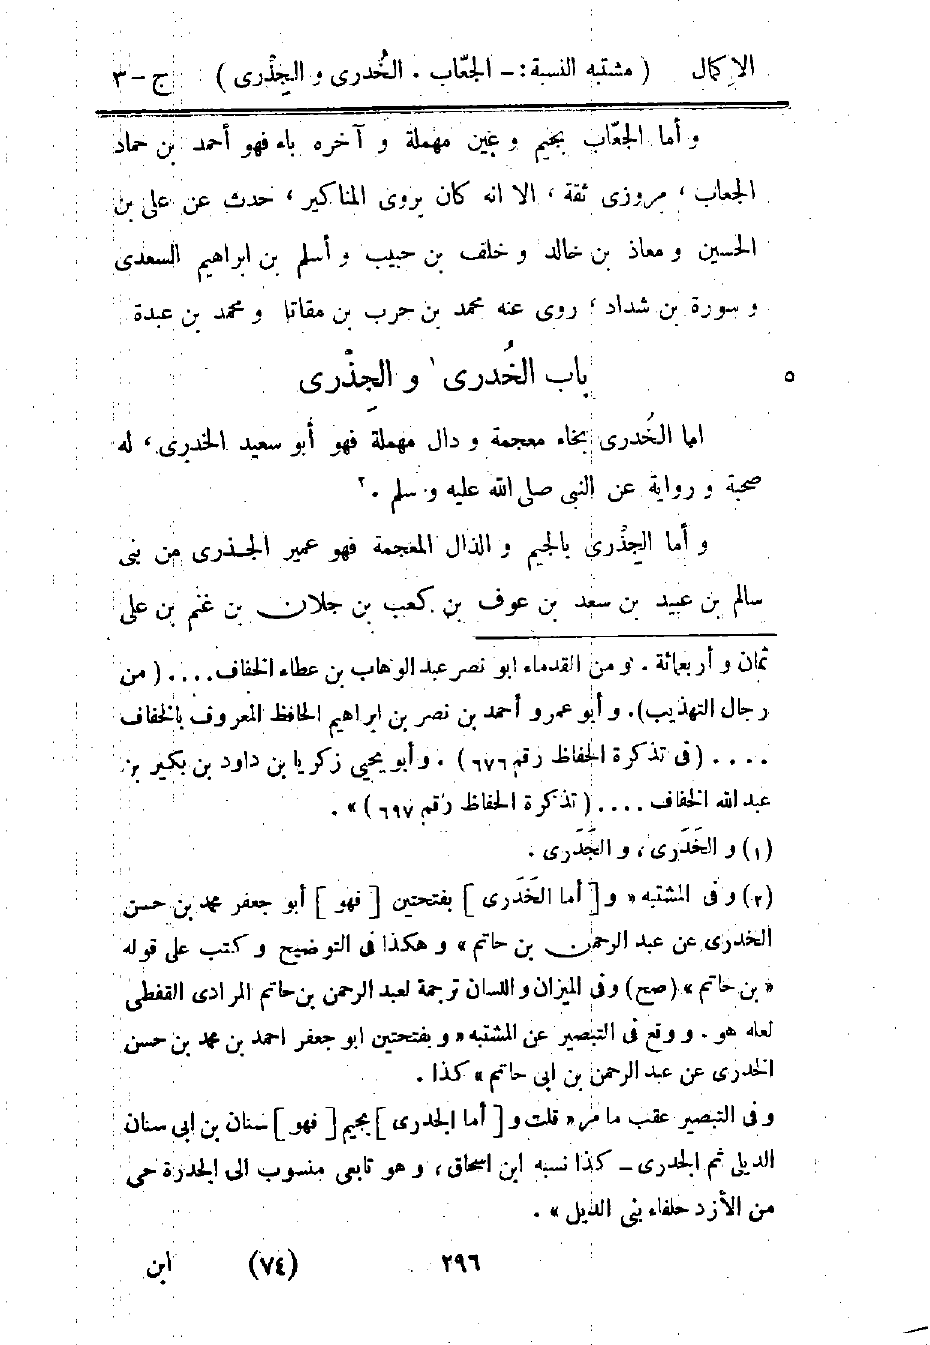 الإكمال ( مشتبه النسبة : - الجعّاب . الخُدرى و الجِذْرى ) ج - ٣
و أما الجعّاب بجيم و عين مهملة و آخره باء فهو أحمد بن حماد
الجعاب ، مروزى ثقة ، الا انه كان يروى المناكير ، حدث عن على بن
الحسين و معاذ بن خالد و خلف بن حبيب و أسلم بن ابراهيم السعدى
و سورة بن شداد ، روى عنه محمد بن حرب بن مقاتا و محمد بن عبدة
باب الخُدرى ١ و الجِذْرى ٥
اما الخُدرى بخاء معجمة و دال مهملة فهو أبو سعيد الخدرى ، له
صحبة و رواية عن النبى صلى الله عليه و سلم . ٢
و أما الجِذْرى بالجيم و الذال المعجمة فهو عمير الجذرى من بنى
سالم بن عبيد بن سعد بن عوف بن كعب بن جلان بن غنم بن على
ثمان و أربعمائة . و من القدماء ابو نصر عبد الوهاب بن عطاء الخفاف .... ( من
رجال التهذيب). و أبو عمرو أحمد بن نصر بن ابراهيم الحافظ المعروف بالخفاف
.... (فى تذكرة الحفاظ رقم ٦٧٦) . و أبو يحيى زكريا بن داود بن بكير بن
عبد الله الخفاف .... ( تذكرة الحفاظ رقم ٦٩٧ ) » .
(١) و الخَدَرى ، و الجَدَرى .
(٢) و فى المشتبه « و [ أما الخَدَرى ] بفتحتين [ فهو ] أبو جعفر محمد بن حسن
الخدرى عن عبد الرحمن بن حاتم » و هكذا فى التوضيح و كتب على قوله
« بن حاتم » (صح) و فى الميزان و اللسان ترجمة لعبد الرحمن بن حاتم المرادى القفطى
لعله هو . و وقع فى التبصير عن المشتبه « و بفتحتين ابو جعفر احمد بن محمد بن حسن
الخدرى عن عبد الرحمن بن ابى حاتم » كذا .
و فى التبصير عقب ما مر « قلت و [ أما الجدرى ] بجيم [ فهو ] سنان بن ابى سنان
الديلى ثم الجدرى - كذا نسبه ابن اسحاق ، و هو تابعى منسوب الى الجدرة حى
من الأزد حلفاء بنى الديل » .
٢٩٦ (٧٤) ابن